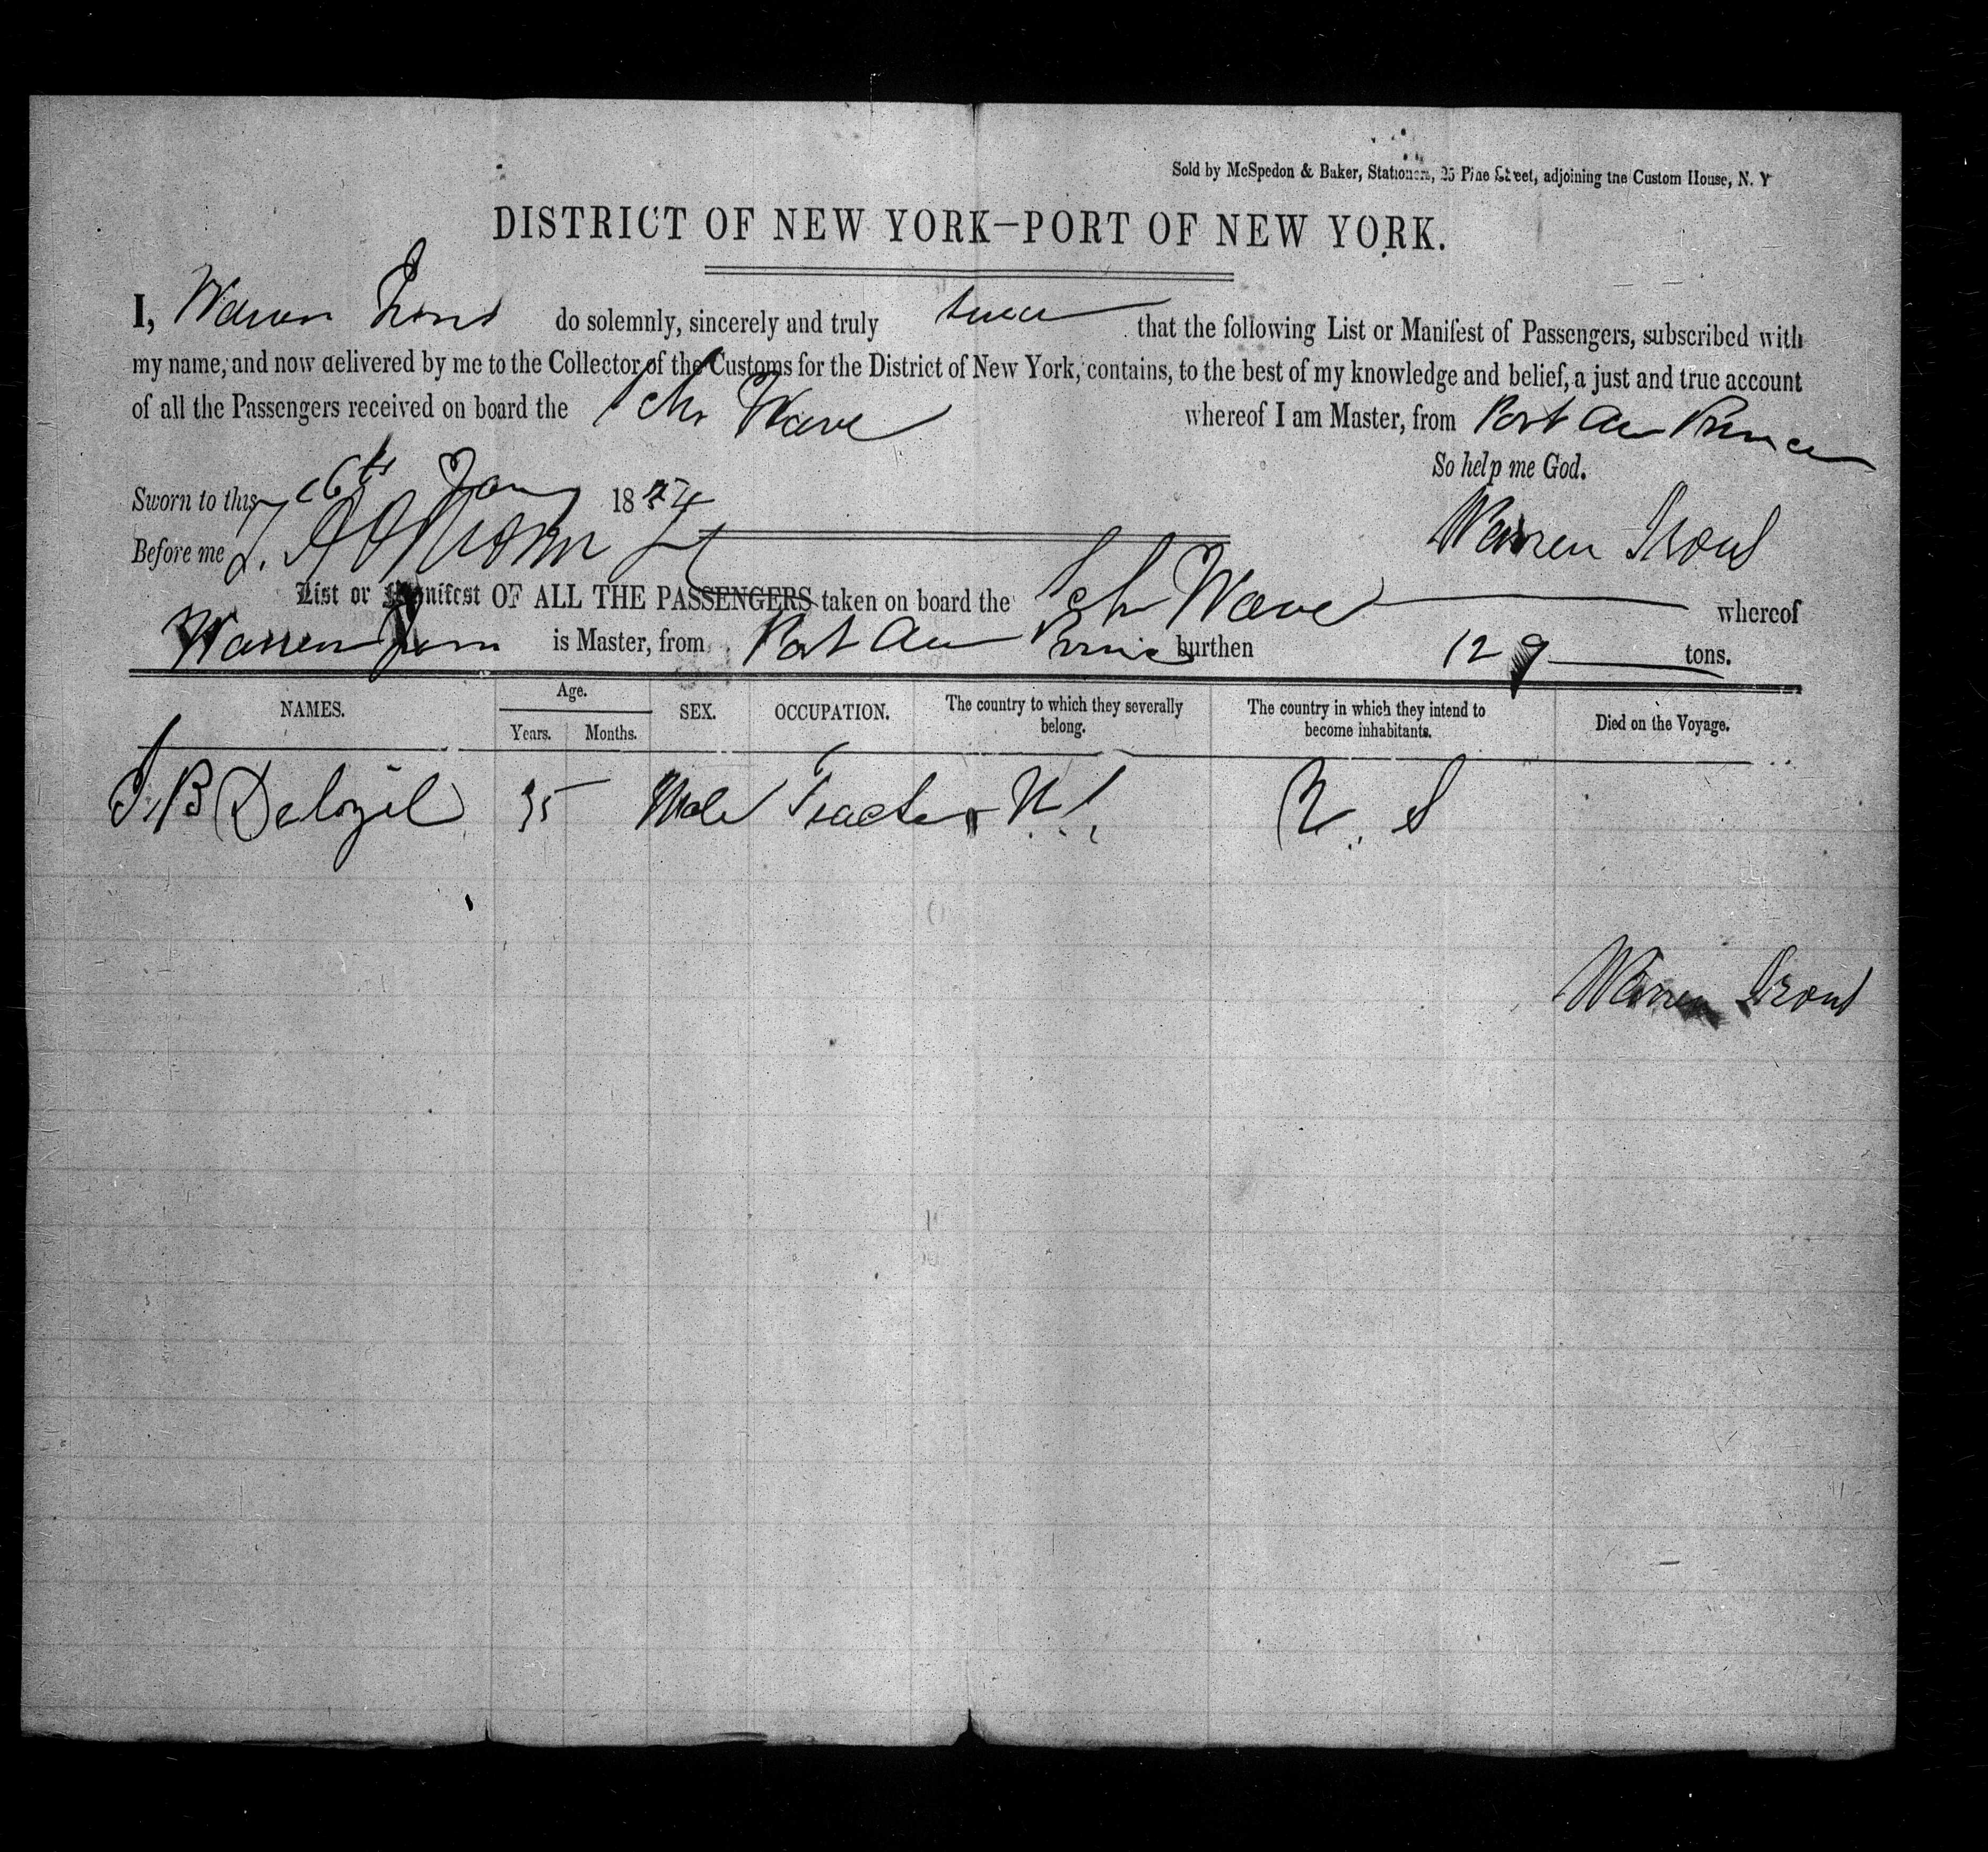 Sold by McSpedon & Baker, Stationers, 25 Pine Street, adjoining the Custom House, N. Y
DISTRICT OF NEW YORK—PORT OF NEW YORK.
I, Warren do solemnly, sincerely and truly swear that the following List or Manifest of Passengers, subscribed with
my name, and now delivered by me to the Collector of the Customs for the District of New York, contains, to the best of my knowledge and belief, a just and true account
of all the Passengers received on board the Schr Wave whereof I am Master, from Port Au Prince
So help me God.
Sworn to this 26th Jany 1854
Before me Warren
List or Manifest OF ALL THE PASSENGERS taken on board the Schr Wave whereof
Warren is Master, from Port Au Prince burthen 129 tons.
NAMES. Age. Years. Months. SEX. OCCUPATION. The country to which they severally belong. The country in which they intend to become inhabitants. Died on the Voyage.
B 35 Male U.S. U.S
Warren